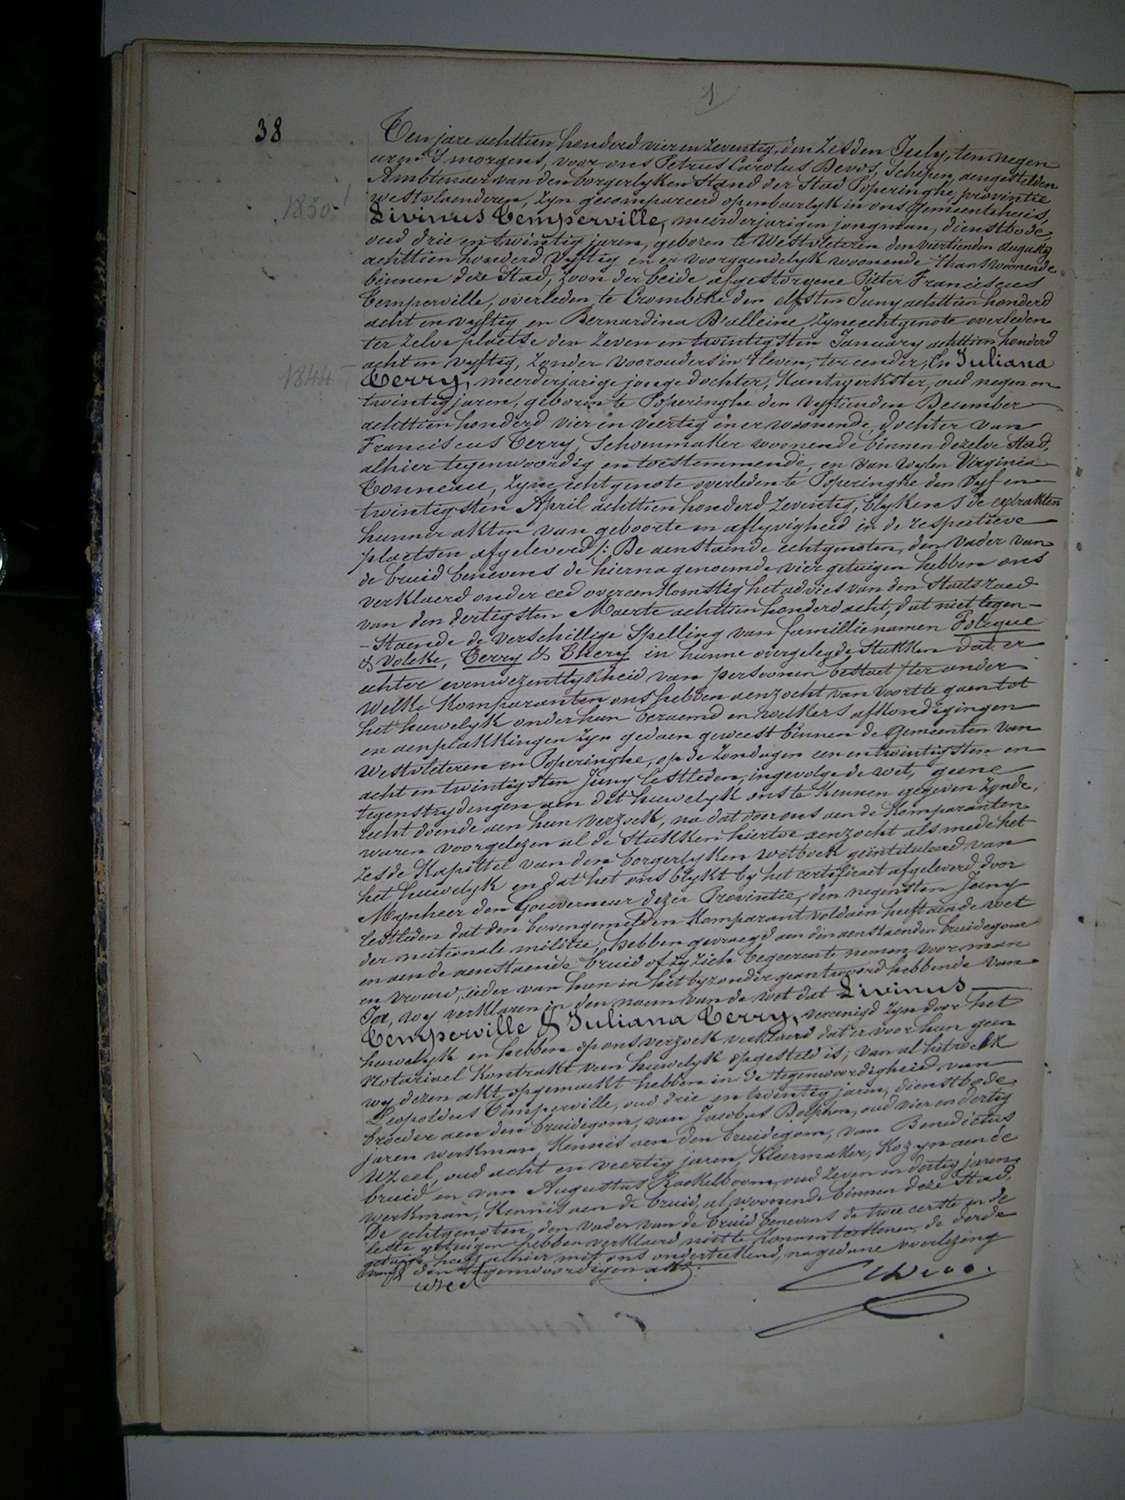 1
38
Ten jare achttien honderd vier en zeventig, den zesden July, ten negen
uren 's morgens, voor ons Petrus Carolus Devos, Schepen, aengestelden
Ambtenaer van den borgerlyken Stand der Stad Poperinghe, provintie
1850
westvlaenderen, zyn gecompareerd openbaerlyk in ons Gemeentehuis,
Livinus Temperville, meerderjarigen jongman, dienstbode,
oud drie en twintig jaren, geboren te Westvleteren den viertienden Augusty
achttien honderd vyftig en er voorgaendelyk woonende thans woonende
binnen deze Stad, zoon der beide afgestorvene Pieter Franciscus
Temperville, overleden te Crombeke den elfsten Juny achttien honderd
acht en vyftig en Bernardina D'alleine zyne echtgenote overleden
ter zelve plaetse den zeven en twintigsten January achttien honderd
acht en vyftig, zonder voorouders in 't leven, ter eender, En Juliana
1844
Terry, meerderjarige jonge dochter, Kantwerkster, oud negen en
twintig jaren, geboren te Poperinghe den vyftienden December
achttien honderd vier en veertig en er woonende, dochter van
Franciscus Terry, Schoenmaker woonende binnen dezelve Stad,
alhier tegenwoordig en toestemmende, en van wylen Virginia
Tonneau, zyne echtgenote overleden te Poperinghe den vyf en
twintigsten April achttien honderd zeventig, blykens de extrakten
hunner akten van geboorte en aflyvigheid in de respectieve
plaetsen afgeleverd /: De aenstaende echtgenoten, den Vader van
de bruid benevens de hierna genoemde vier getuigen hebben ons
verklaerd onder eed overeenkomstig het advies van den Staetsraed
van den dertigsten Maerte achttien honderd acht, dat niet tegen-
-staende de verschillige Spelling van famillienamen Folcque
& Volcke, Terry & Thery in hunne overgelegde Stukken dat er
echter evenwezentlykheid van persoonen bestaet /ter ander
Welke Komparanten ons hebben aenzocht van voort te gaen tot
het huwelyk onder hun beraemd en welkers afkondigingen
en aenplakkingen zyn gedaen geweest binnen de Gemeenten van
Westvleteren en Poperinghe, op de Zondagen een en twintigsten en
acht en twintigsten Juny lestleden, ingevolge de wet, geene
tegenstrydingen aen dit huwelyk ons te Kennen gegeven zynde,
recht doende aen hun verzoek, na dat door ons aen de Komparanten
waren voorgelezen al de Stukken hiertoe aenzocht als mede het
zesde Kapittel van den borgerlyken wetboek geïntituleerd van
het huwelyk en dat het ons blykt by het certificaet afgeleverd door
Mynheer den Gouverneur dezer Provintie, den negensten Juny
lestleden dat den bovengemelden Komparant voldaen heeft aen de wet
der nationale militie, hebben gevraegd aen den aenstaenden bruidegom
en aen de aenstaende bruid of zy zich begeerente nemen voor man
en vrouw, ieder van hun in het byzonder geantwoord hebbende van
Ja, wy verklaren in den naem van de wet dat Livinus
Temperville & Juliana Terry, vereenigd zyn door het
huwelyk en hebben op ons verzoek verklaerd dat er voor hun geen
notariael Kontrakt van huwelyk opgesteld is; van al hetwelk
wy dezen akt opgemaekt hebben in de tegenwoordigheid van
Leopoldus Temperville, oud drie en twintig jaren, dienstbode
broeder aen den bruidegom, van Jacobus Dolphen, oud vier en dertig
jaren werkman, Kennis aen den bruidegom, van Benedictus
Uzeel, oud acht en veertig jaren, Kleermaker, Kozyn aen de
bruid en van Augustus Kackelboom, oud zeven en dertig jaren
werkman, Kennis aen de bruid, al woonende binnen deze Stad,
De echtgenoten, den vader van de bruid benevens de twee eerste en de
leste getuigen hebben verklaerd niet te Konnen teekenen, de derde
getuige heeft alhier met ons onderteekend, na gedane voorlezing
van den tegenwoordigen akt.